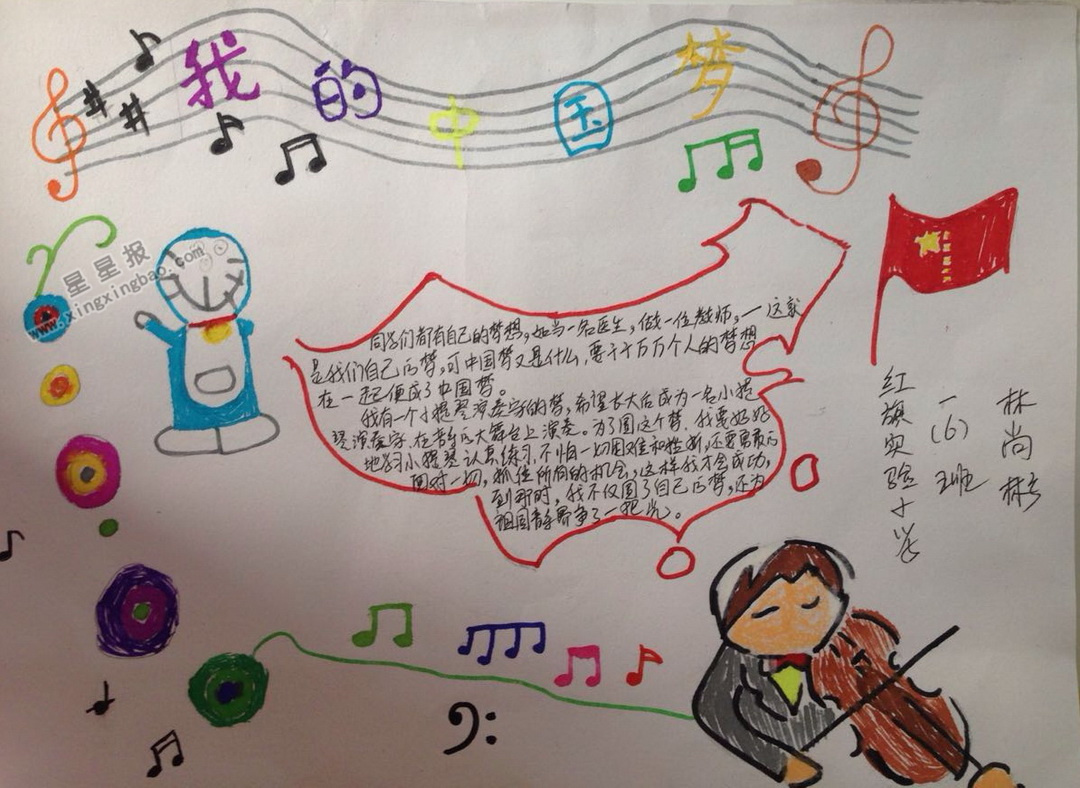 我的中国梦
星星报
www.xingxingbao.com
同学们都有自己的梦想，如当一名医生，做一位教师，一这就
是我们自己的梦，可中国梦又是什么，要千千万万个人的梦想
在一起便成了中国梦。
我有一个小提琴演奏家的梦，希望长大后成为一名小提
琴演奏家，在音乐的大舞台上演奏。为了圆这个梦，我要好好
地学习小提琴，认真练习，不怕一切困难和挫折，还要勇敢的
面对一切，抓住所有的机会，这样我才会成功，
到那时，我不仅圆了自己的梦，还为
祖国音乐界争了一把光。
红旗实验小学
一(6)班
林尚